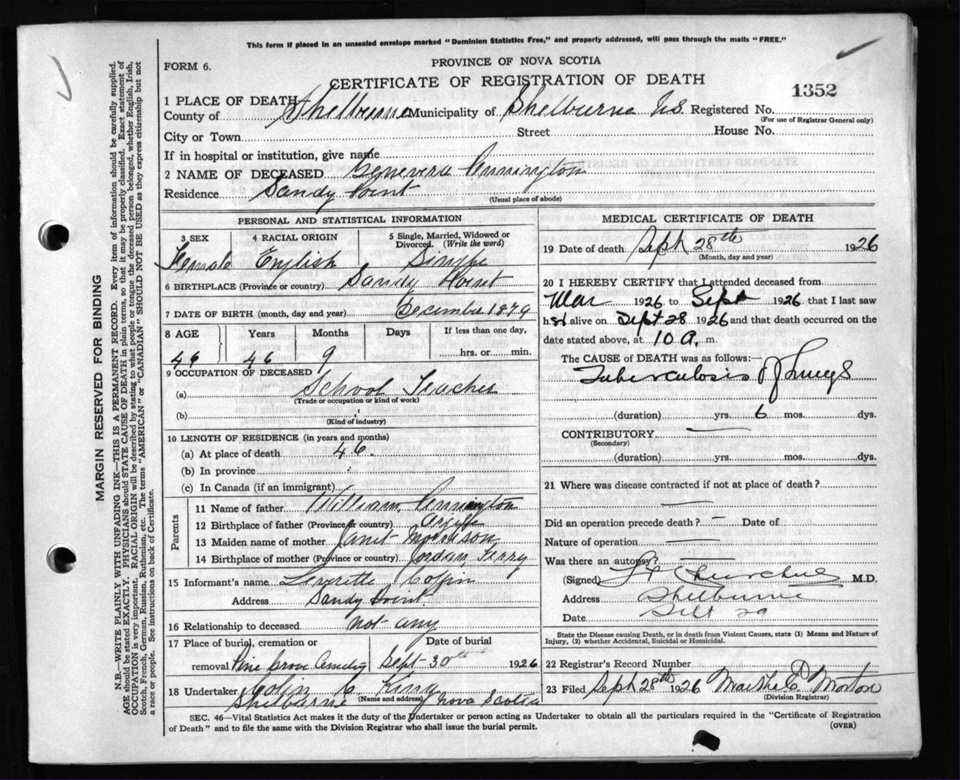 This form if placed in an unsealed envelope marked "Dominion Statistics Free," and properly addressed, will pass through the mails "FREE."
FORM 6.
PROVINCE OF NOVA SCOTIA
CERTIFICATE OF REGISTRATION OF DEATH
1352
1 PLACE OF DEATH
County of Shelburne Municipality of Shelburne N.S. Registered No.
(For use of Registrar General only)
City or Town Street House No.
If in hospital or institution, give name
2 NAME OF DECEASED
Residence Sandy Point
(Usual place of abode)
PERSONAL AND STATISTICAL INFORMATION
3 SEX 4 RACIAL ORIGIN 5 Single, Married, Widowed or Divorced. (Write the word)
Female English Single
6 BIRTHPLACE (Province or country) Sandy Point
7 DATE OF BIRTH (month, day and year) December 1879
8 AGE Years Months Days If less than one day,
46 46 9 hrs. or min.
9 OCCUPATION OF DECEASED
(a) School Teacher
(Trade or occupation or kind of work)
(b)
(Kind of industry)
10 LENGTH OF RESIDENCE (in years and months)
(a) At place of death 46.
(b) In province
(c) In Canada (if an immigrant)
Parents
11 Name of father William
12 Birthplace of father (Province or country) Argyle
13 Maiden name of mother Janet Morrison
14 Birthplace of mother (Province or country) Jordan Ferry
15 Informant's name Colpin
Address Sandy Point
16 Relationship to deceased not any
17 Place of burial, cremation or Date of burial
removal Pine Grove Sept-30th 1926
18 Undertaker Colin C. King
(Name and address)
Shelburne Nova Scotia
MEDICAL CERTIFICATE OF DEATH
19 Date of death Sept 28th 1926
(Month, day and year)
20 I HEREBY CERTIFY that I attended deceased from
Mar 1926 to Sept 1926 that I last saw
her alive on Sept 28 1926 and that death occurred on the
date stated above, at 10 a. m.
The CAUSE OF DEATH was as follows:
Tuberculosis of Lungs
(duration) yrs. 6 mos. dys.
CONTRIBUTORY
(Secondary)
(duration) yrs. mos. dys.
21 Where was disease contracted if not at place of death?
Did an operation precede death? - Date of
Nature of operation
Was there an autopsy?
(Signed) Churchill M.D.
Address Shelburne
Date Sept 29
State the Disease causing Death, or in death from Violent Causes, state (1) Means and Nature of
Injury, (2) whether Accidental, Suicidal or Homicidal.
22 Registrar's Record Number
23 Filed Sept 28th 1926 Morton
(Division Registrar)
SEC. 46—Vital Statistics Act makes it the duty of the Undertaker or person acting as Undertaker to obtain all the particulars required in the "Certificate of Registration
of Death" and to file the same with the Division Registrar who shall issue the burial permit.
(OVER)
MARGIN RESERVED FOR BINDING
N.B.—WRITE PLAINLY WITH UNFADING INK—THIS IS A PERMANENT RECORD. Every item of information should be carefully supplied.
AGE should be stated EXACTLY. PHYSICIANS should STATE CAUSE OF DEATH in plain terms, so that it may be properly classified. Exact statement of
OCCUPATION is very important. RACIAL ORIGIN will be described by stating to what people or tongue the deceased person belonged, whether English, Irish,
Scotch, French, German, Russian, Ruthenian, etc. The terms "AMERICAN" or "CANADIAN" SHOULD NOT BE USED as they express citizenship but not
a race or people. See instructions on back of Certificate.